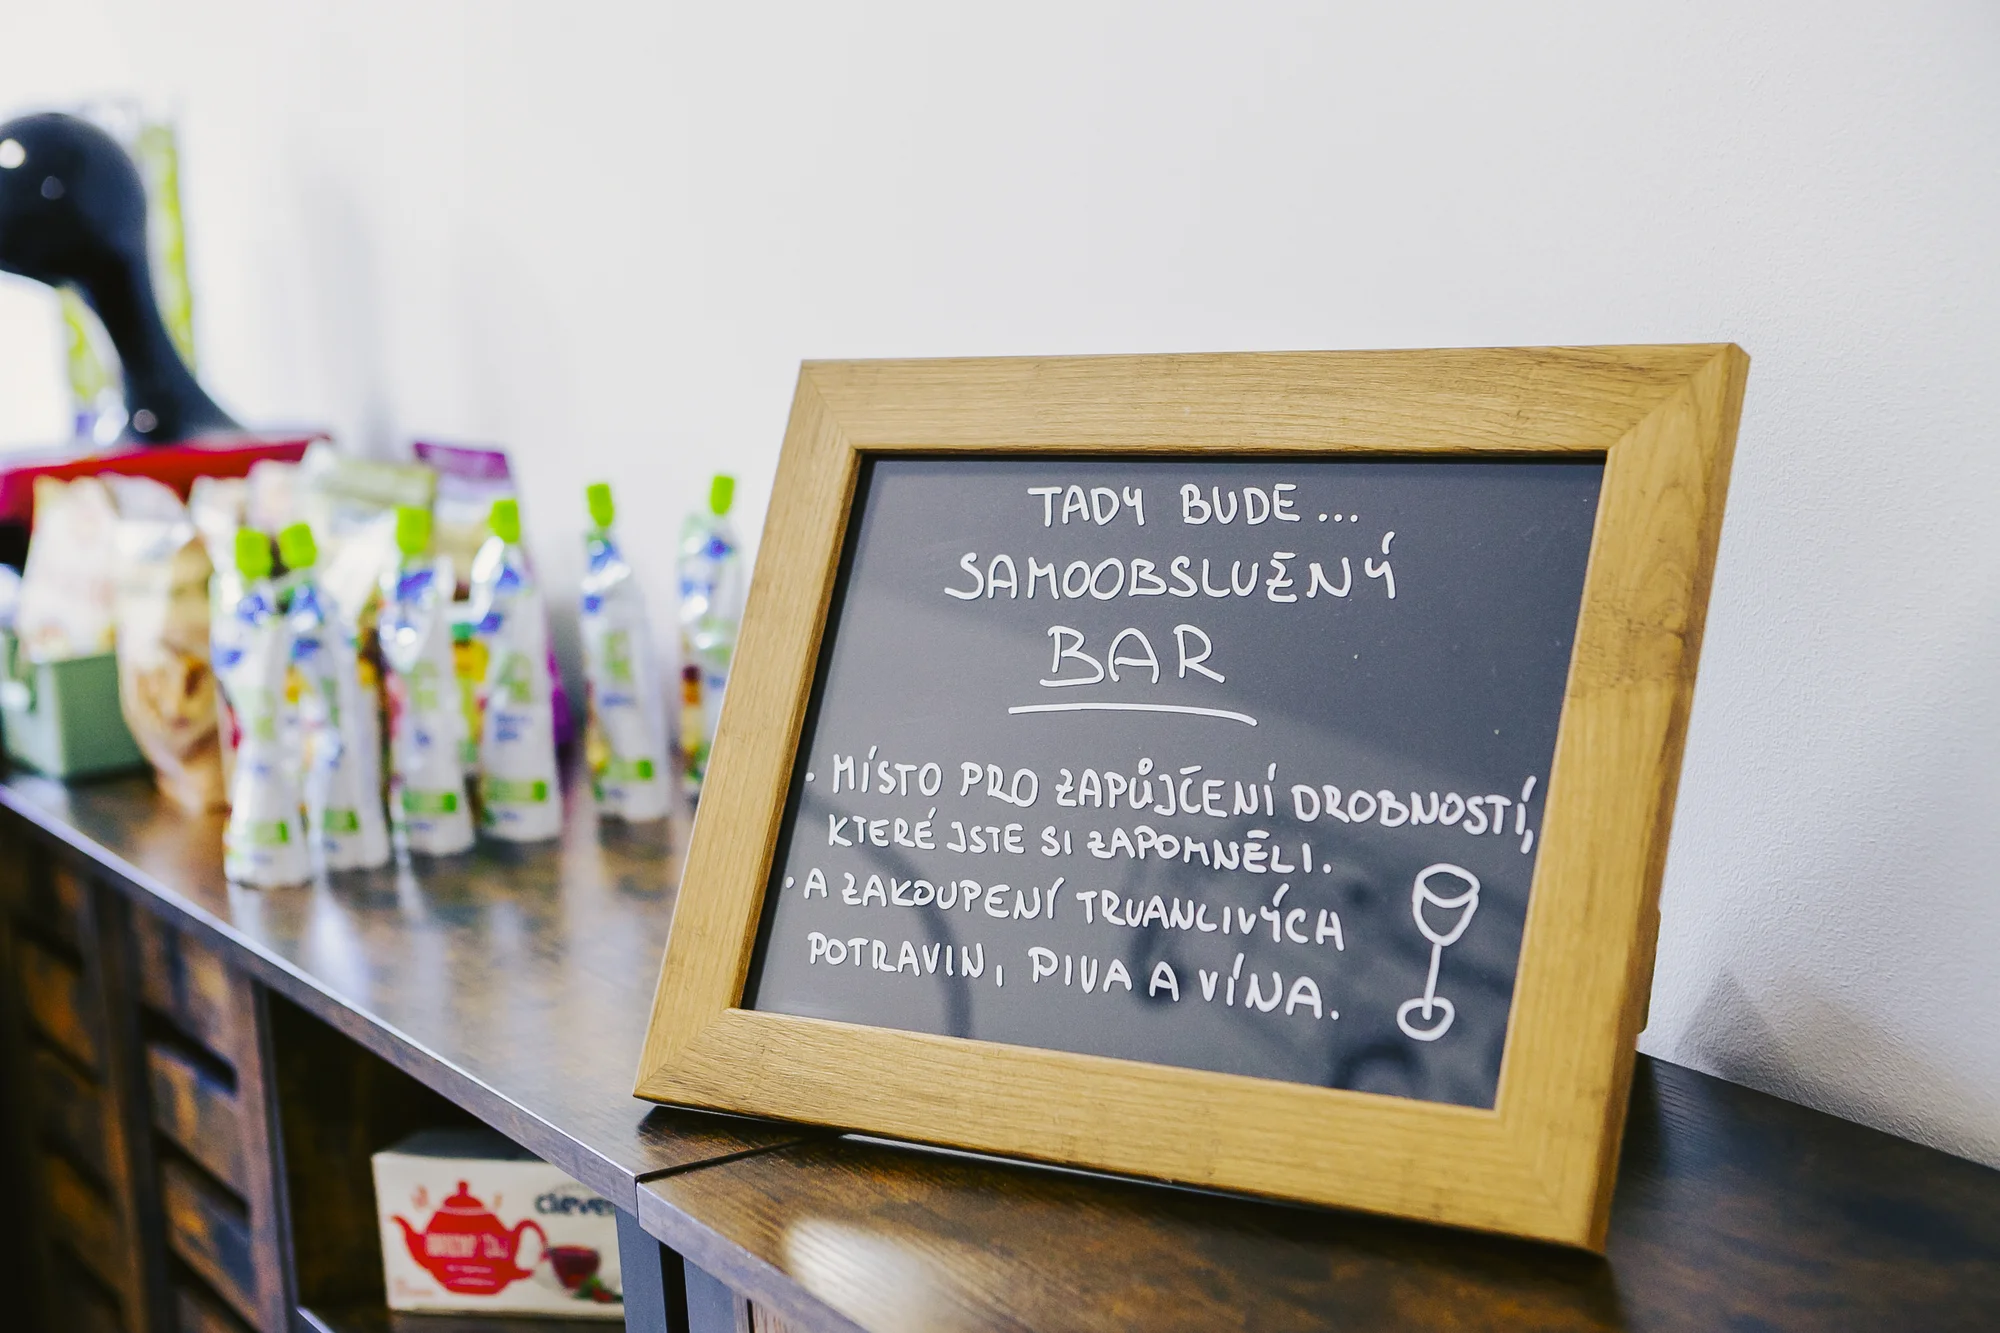 TADY BUDE...
SAMOOBSLUŽNÝ
BAR
· MÍSTO PRO ZAPŮJČENÍ DROBNOSTÍ,
KTERÉ JSTE SI ZAPOMNĚLI.
· A ZAKOUPENÍ TRVANLIVÝCH
POTRAVIN, PIVA A VÍNA.
clever